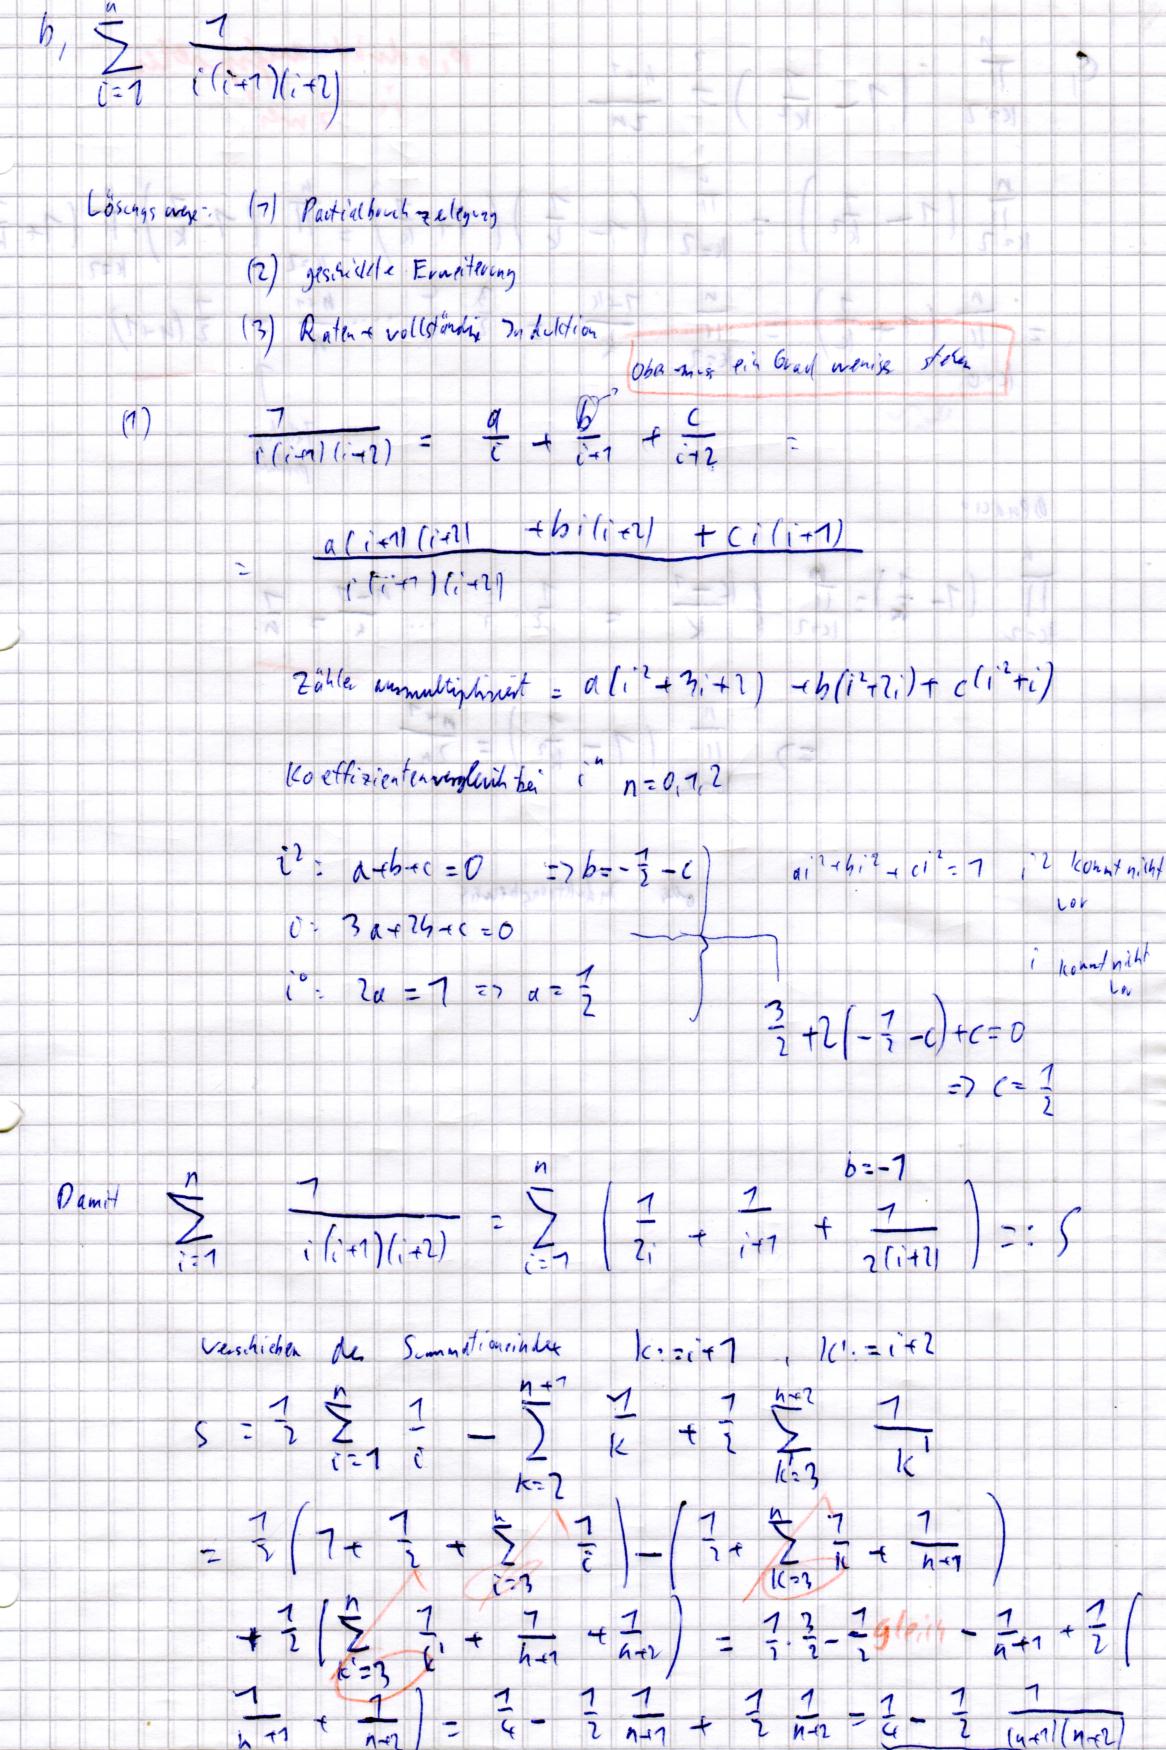 b, \sum_{i=1}^{n} \frac{1}{i(i+1)(i+2)}
Lösungswege: (1) Partialbruchzelegung
(2) geschickte Erweiterung
(3) Raten + vollständige Induktion
Oben muss ein Grad weniger stehen
(1) \frac{1}{i(i+1)(i+2)} = \frac{a}{i} + \frac{b}{i+1} + \frac{c}{i+2} =
= \frac{a(i+1)(i+2) + bi(i+2) + ci(i+1)}{i(i+1)(i+2)}
Zähler ausmultipliziert = a(i^2+3i+2) + b(i^2+2i) + c(i^2+i)
Koeffizientenvergleich bei i^n n=0,1,2
i^2: a+b+c=0 => b=-\frac{1}{2}-c ai^2+bi^2+ci^2=1 i^2 kommt nicht vor
i: 3a+2b+c=0 i kommt nicht vor
i^0: 2a=1 => a=\frac{1}{2}
\frac{3}{2}+2(-\frac{1}{2}-c)+c=0
=> c=\frac{1}{2}
b=-1
Damit \sum_{i=1}^{n} \frac{1}{i(i+1)(i+2)} = \sum_{i=1}^{n} ( \frac{1}{2i} + \frac{1}{i+1} + \frac{1}{2(i+2)} ) =: S
Verschieben des Summationsindex k:=i+1, k':=i+2
S = \frac{1}{2} \sum_{i=1}^{n} \frac{1}{i} - \sum_{k=2}^{n+1} \frac{1}{k} + \frac{1}{2} \sum_{k'=3}^{n+2} \frac{1}{k'}
= \frac{1}{2} ( 1 + \frac{1}{2} + \sum_{i=3}^{n} \frac{1}{i} ) - ( \frac{1}{2} + \sum_{k=3}^{n} \frac{1}{k} + \frac{1}{n+1} )
+ \frac{1}{2} ( \sum_{k'=3}^{n} \frac{1}{k'} + \frac{1}{n+1} + \frac{1}{n+2} ) = \frac{1}{2} \cdot \frac{3}{2} - \frac{1}{2} gleich - \frac{1}{n+1} + \frac{1}{2} (
\frac{1}{n+1} + \frac{1}{n+2} ) = \frac{1}{4} - \frac{1}{2} \frac{1}{n+1} + \frac{1}{2} \frac{1}{n+2} = \frac{1}{4} - \frac{1}{2} \frac{1}{(n+1)(n+2)}